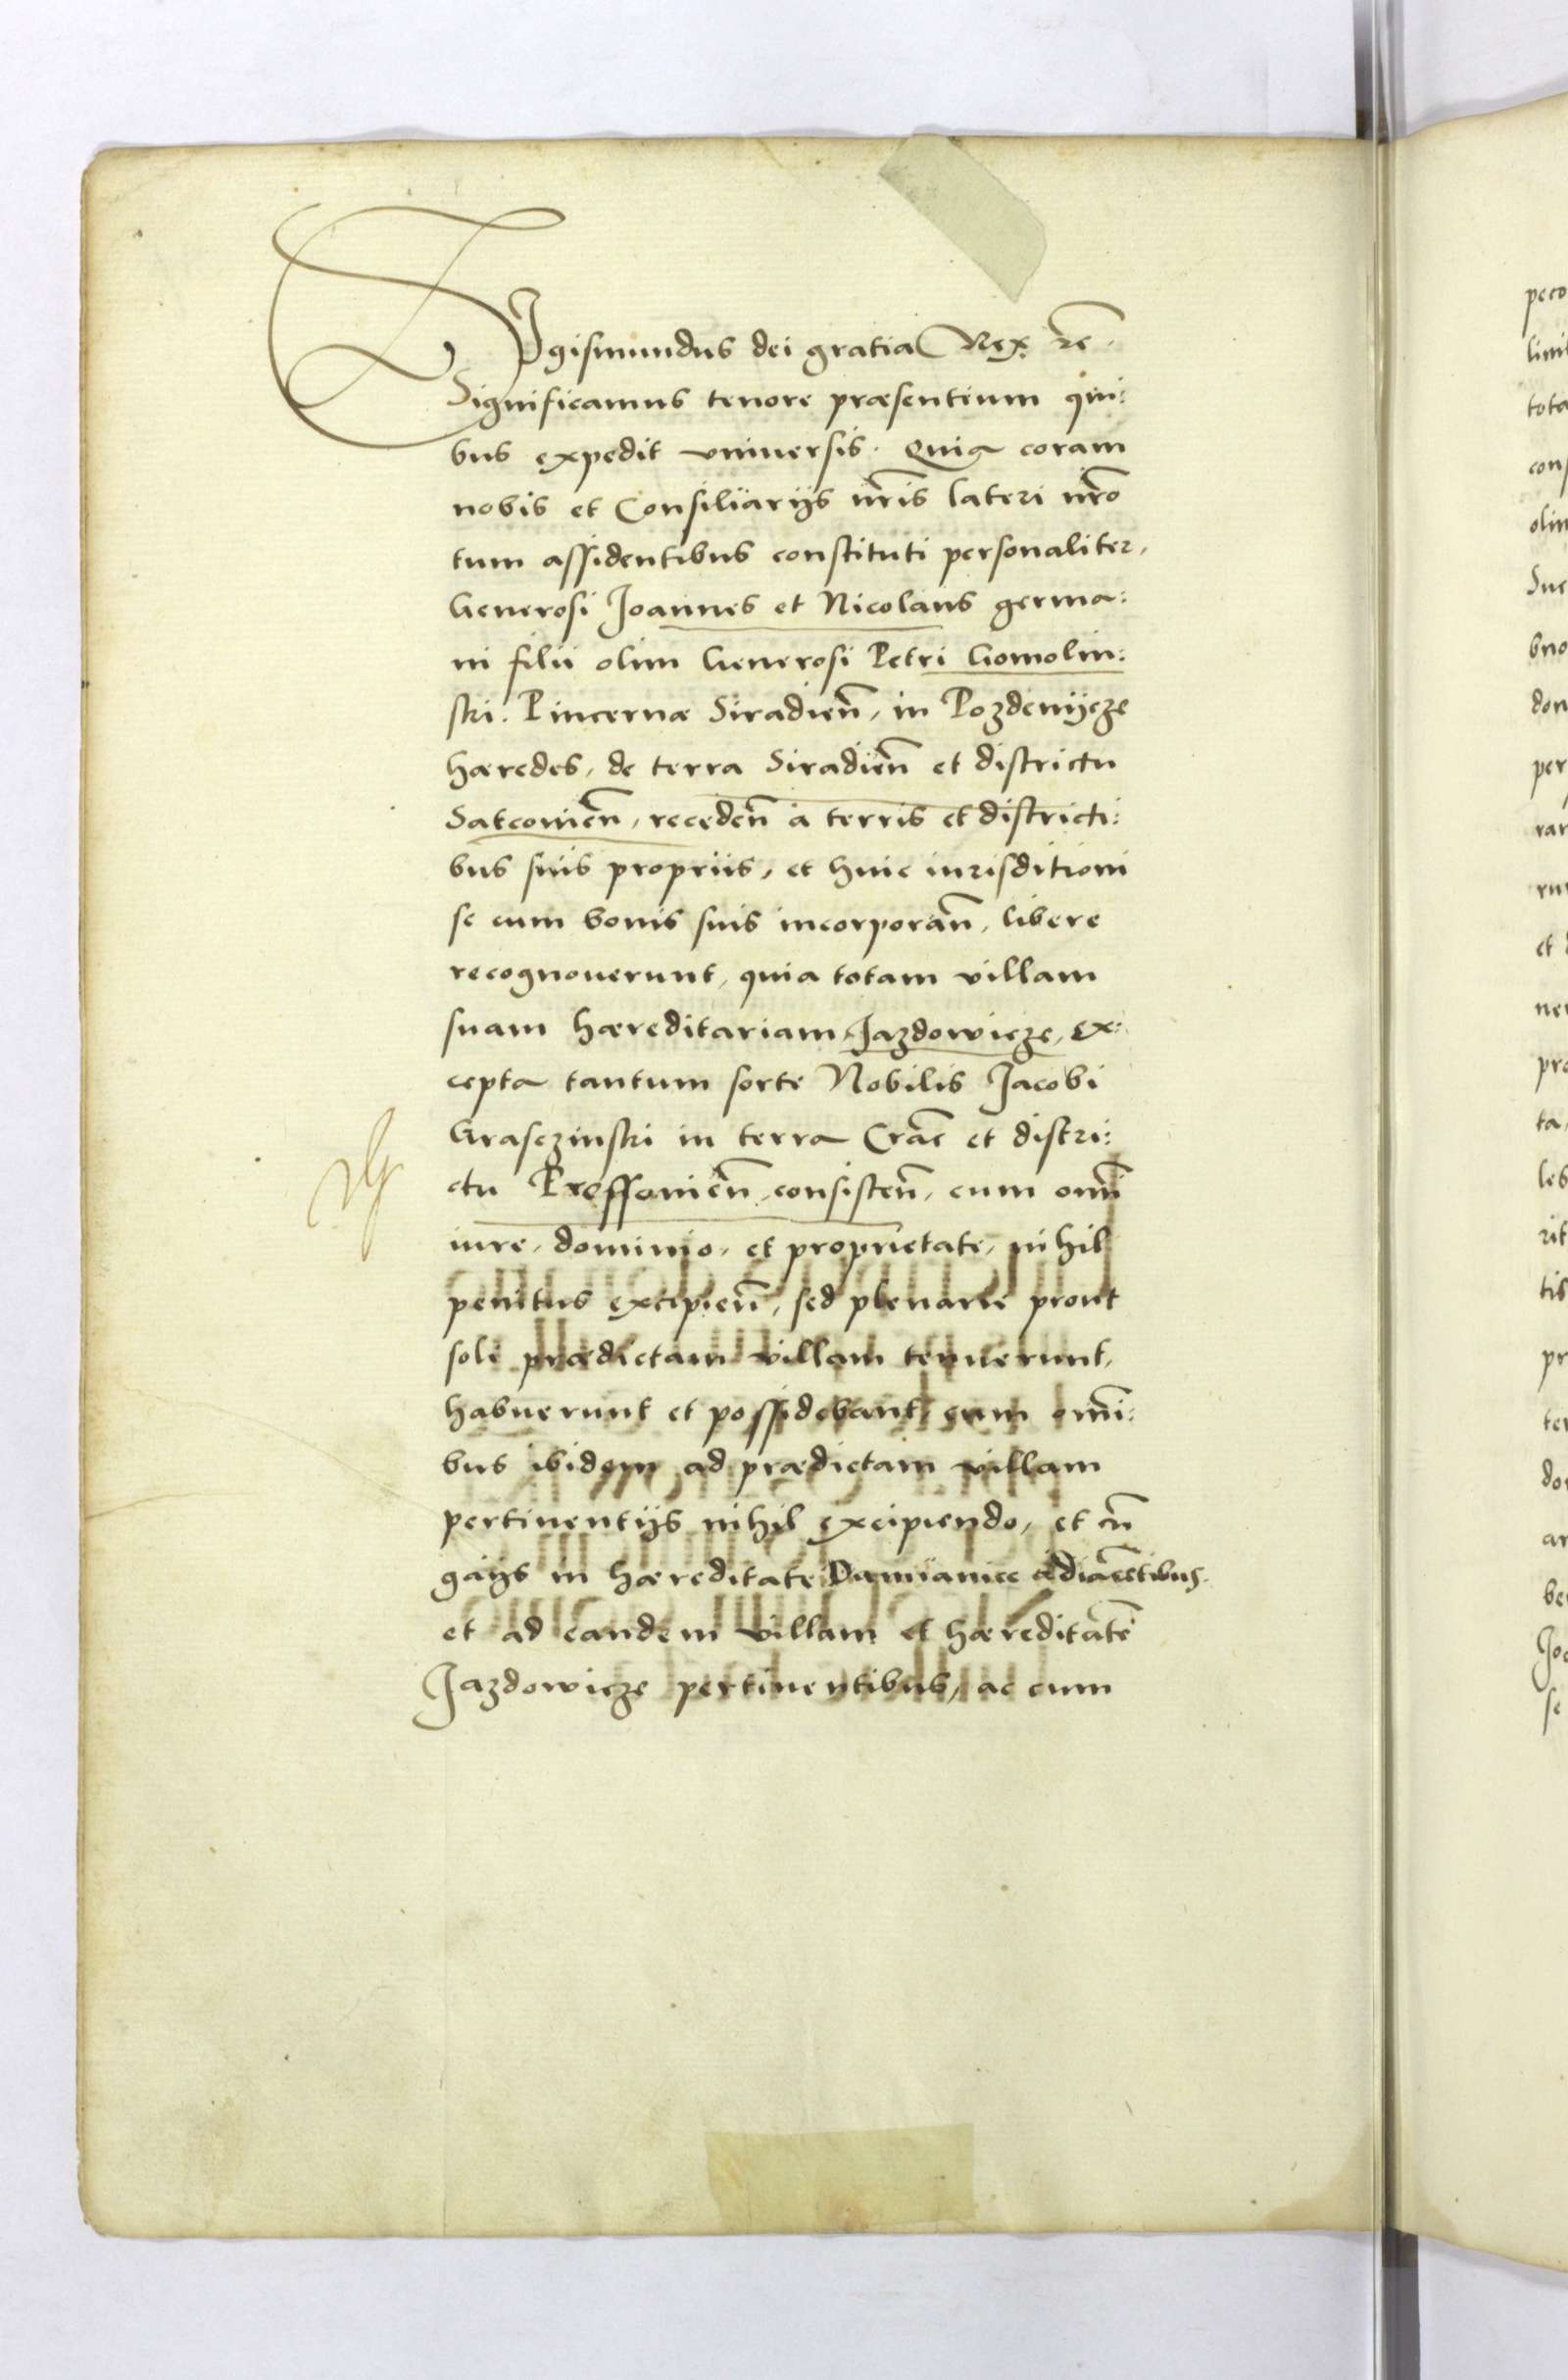 Sigismundus dei gratia Rex ꝛc.
Significamus tenore præsentium qui:
bus expedit vniuersis. Quia coram
nobis et Consiliarijs nr̃is lateri nr̃o
tum assidentibus constituti personaliter,
Generosi Joannes et Nicolaus germa:
ni filii olim Generosi Petri Gomolin:
ski. Pincernæ Siradien̄, in Pozdenijcze
hæredes, de terra Siradien̄ et districtu
Satcovien̄, receden̄ a terris et districti:
bus suis propriis, et huic iurisditioni
se cum bonis suis incorporan̄, libere
recognouerunt, quia totam villam
suam hæreditariam Jazdowicze, ex:
cepta tantum sorte Nobilis Jacobi
Grasczinski in terra Crac̄ et distri:
ctu Prossouien̄ consisten̄, cum omni
iure, dominio, et proprietate, nihil
penitus excipien̄, sed plenarie prout
soli prædictam villam tenuerunt,
habuerunt et possidebant, cum omni:
bus ibidem ad prædictam villam
pertinentijs nihil excipiendo, et cū
gaijs in hæreditate Damianice adiacētibus.
et ad eandem villam et hæreditatē
Jazdowicze pertinentibus, ac cum
peco
limi
tota
cons
olim
Sue
bno
don
per
rar
run
et
ner
pro
ta,
les
rit
tib
pr
ter
do
ar
be
Jo
se